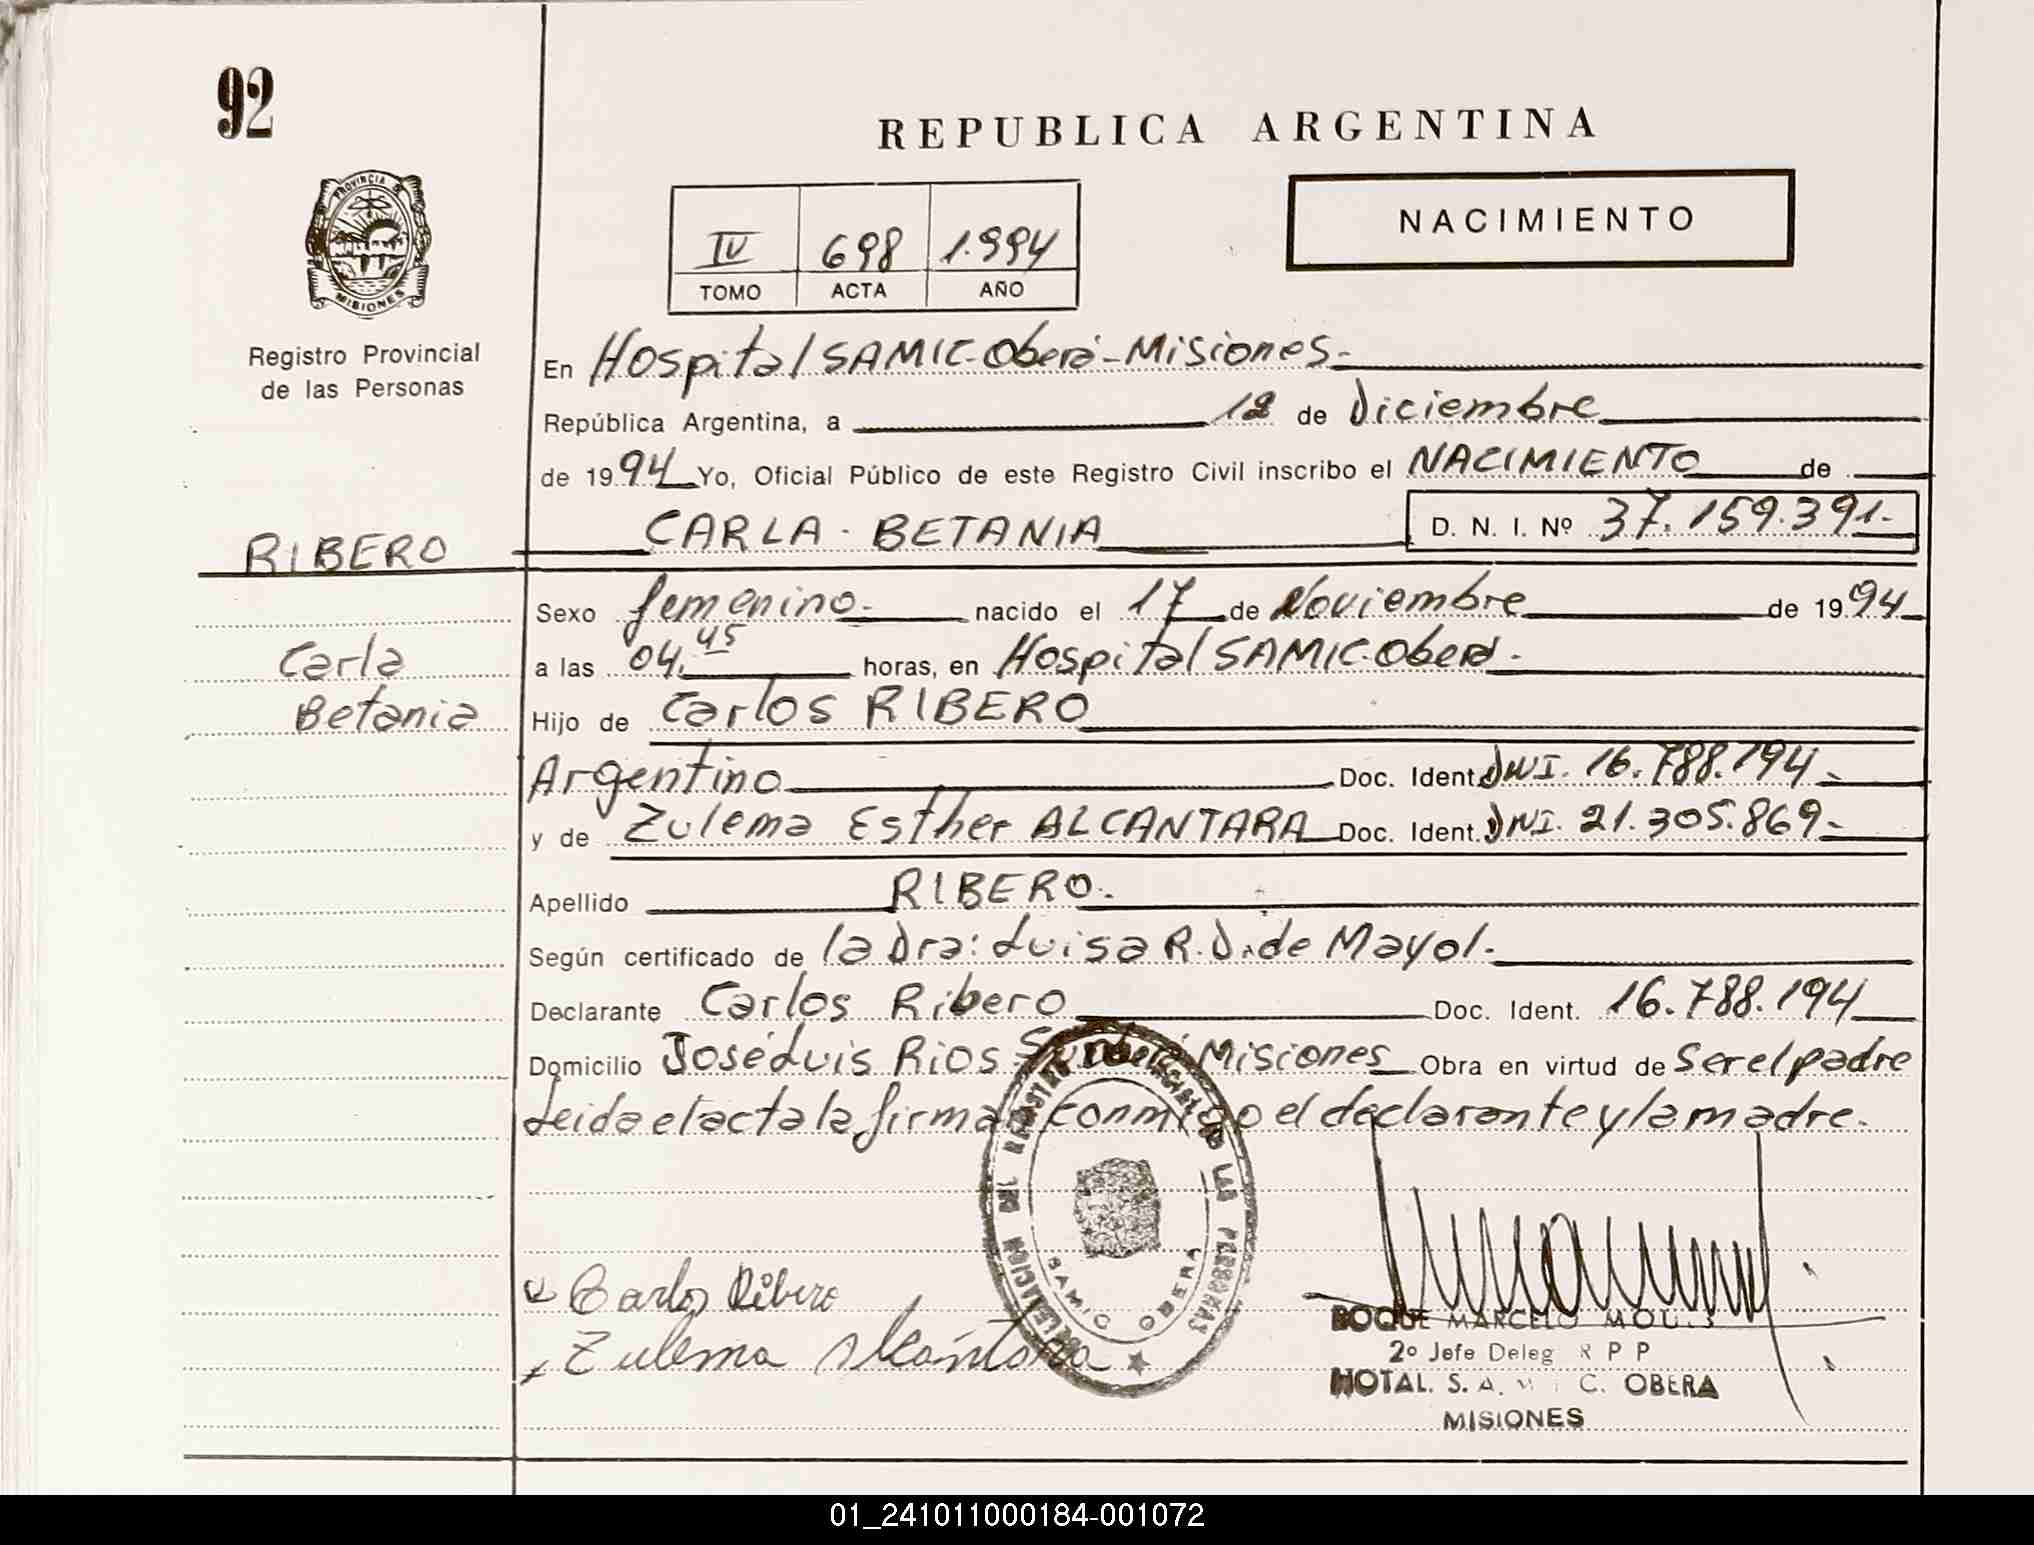 92
REPUBLICA ARGENTINA
PROVINCIA DE
MISIONES
Registro Provincial
de las Personas
IV 698 1.994
TOMO ACTA AÑO
NACIMIENTO
En Hospital SAMIC-Oberá-Misiones-
República Argentina, a 12 de Diciembre
de 1994 Yo, Oficial Público de este Registro Civil inscribo el NACIMIENTO de
RIBERO CARLA-BETANIA D. N. I. Nº 37.159.391.-
Sexo femenino.- nacido el 17 de Noviembre de 1994
Carla a las 04.45 horas, en Hospital SAMIC-Oberá.-
Betania Hijo de Carlos RIBERO
Argentino Doc. Ident. DNI. 16.788.194.-
y de Zulema Esther ALCANTARA Doc. Ident. DNI. 21.305.869-
Apellido RIBERO.-
Según certificado de la Dra: Luisa R. D. de Mayol.-
Declarante Carlos Ribero Doc. Ident. 16.788.194
Domicilio José Luis Rios Misiones Obra en virtud de Ser el padre
Leida el acta la firman conmigo el declarante y la madre.
DELEGACION DEL REGISTRO DE LAS PERSONAS
SAMIC OBERA
Carlos Ribero
Zulema Alcántara
ROQUE MARCELO
2º Jefe Deleg R P P
HOTAL. S. A. M I C. OBERA
MISIONES
01_241011000184-001072